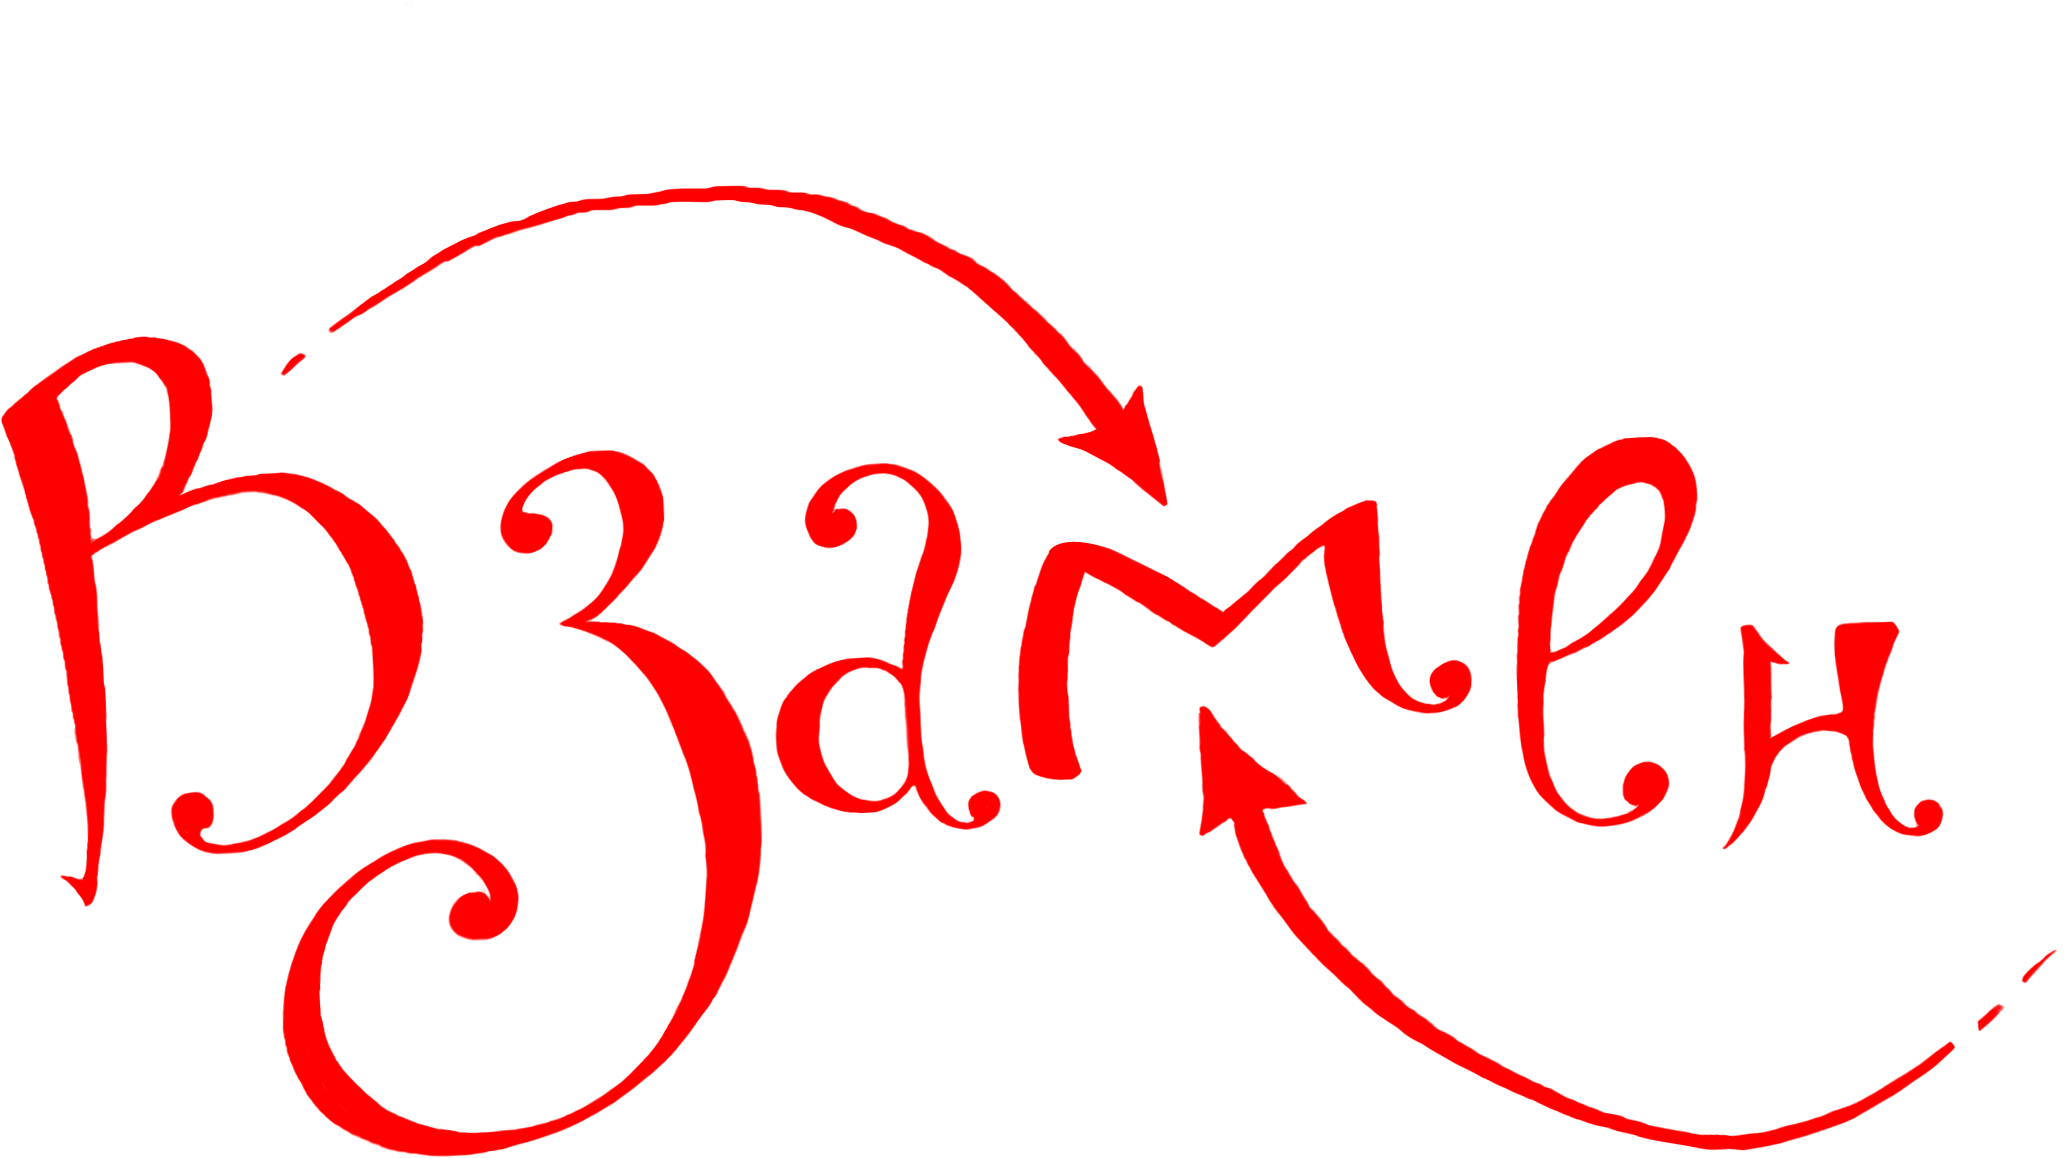 Взамен